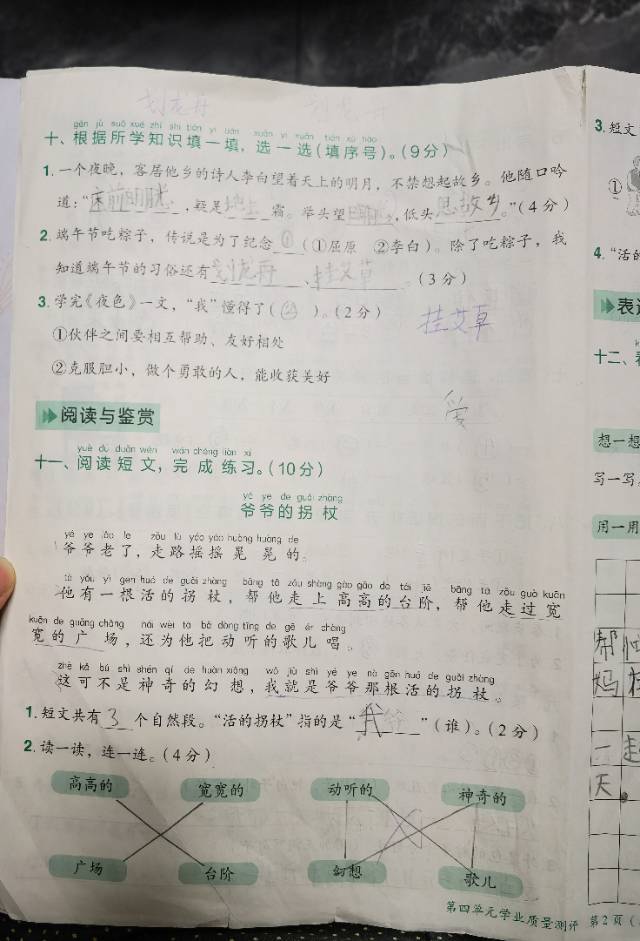 划龙舟
gēn jù suǒ xué zhī shi tián yi tián xuǎn yi xuǎn tián xù hào
十、根据所学知识填一填，选一选(填序号)。(9分)
1.一个夜晚，客居他乡的诗人李白望着天上的明月，不禁想起故乡。他随口吟
道：“床前明月光，疑是地上霜。举头望明月，低头思故乡。”(4分)
2.端午节吃粽子，传说是为了纪念①(①屈原 ②李白)。除了吃粽子，我
知道端午节的习俗还有划龙舟、挂艾草。(3分)
3.学完《夜色》一文，“我”懂得了(②)。(2分)
挂艾草
①伙伴之间要相互帮助、友好相处
②克服胆小，做个勇敢的人，能收获美好
爱
阅读与鉴赏
yuè dú duǎn wén wán chéng liàn xí
十一、阅读短文，完成练习。(10分)
yé ye de guǎi zhàng
爷爷的拐杖
yé ye lǎo le zǒu lù yáo yáo huàng huàng de
爷爷老了，走路摇摇晃晃的。
tā yǒu yì gēn huó de guǎi zhàng bāng tā zǒu shàng gāo gāo de tái jiē bāng tā zǒu guò kuān
他有一根活的拐杖，帮他走上高高的台阶，帮他走过宽
kuān de guǎng chǎng hái wèi tā bǎ dòng tīng de gē ér chàng
宽的广场，还为他把动听的歌儿唱。
zhè kě bú shì shén qí de huàn xiǎng wǒ jiù shì yé ye nà gēn huó de guǎi zhàng
这可不是神奇的幻想，我就是爷爷那根活的拐杖。
1.短文共有3个自然段。“活的拐杖”指的是“我”(谁)。(2分)
2.读一读，连一连。(4分)
高高的 宽宽的 动听的 神奇的
广场 台阶 幻想 歌儿
第四单元学业质量测评 第2页(
3.短文
①
4.“活的
表达
十二、看
想一想
写一写
用一用
帮他
妈
一走
天。